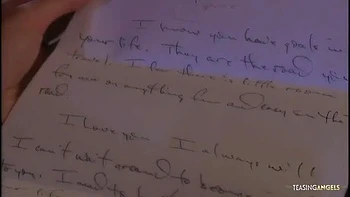 I know you have goals in
your life. They are the road you
travel. I fear there is little room
for me or anything but on the
road
I love you. I always will
I can't wait around to become
to you. I need to
TEASINGANGELS